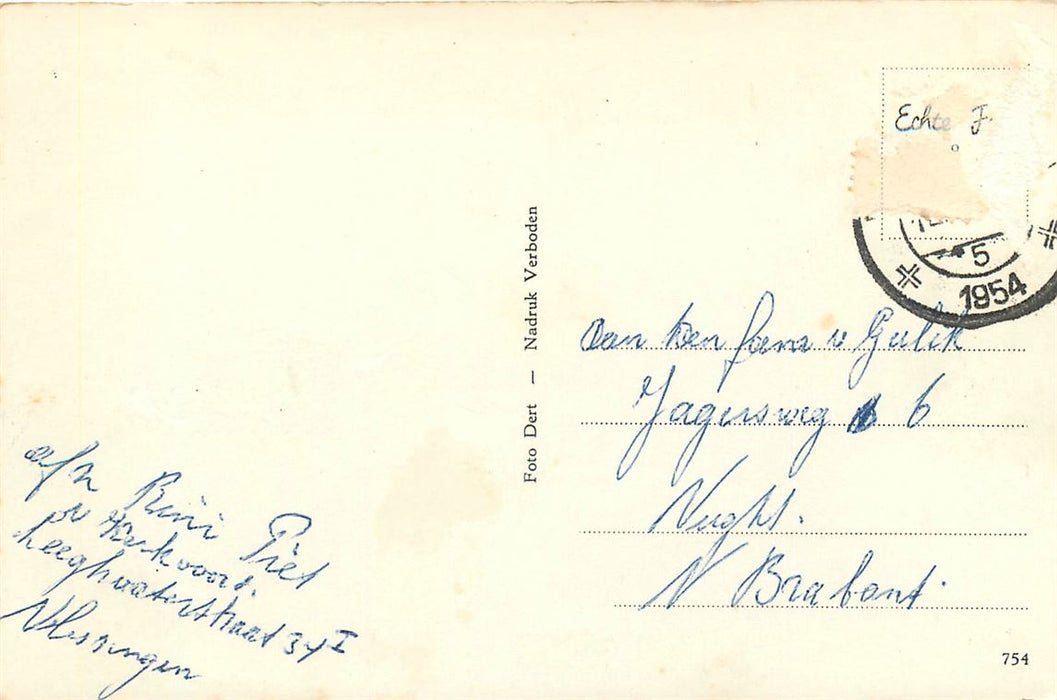 Echte F.
5
1954
Foto Dert — Nadruk Verboden
Aan den fam v Gulik
Jagersweg 6
Vught.
N Brabant.
afz Rini Piet
Kerkvoord.
Leeghwaterstraat 34 I
Vlissingen
754